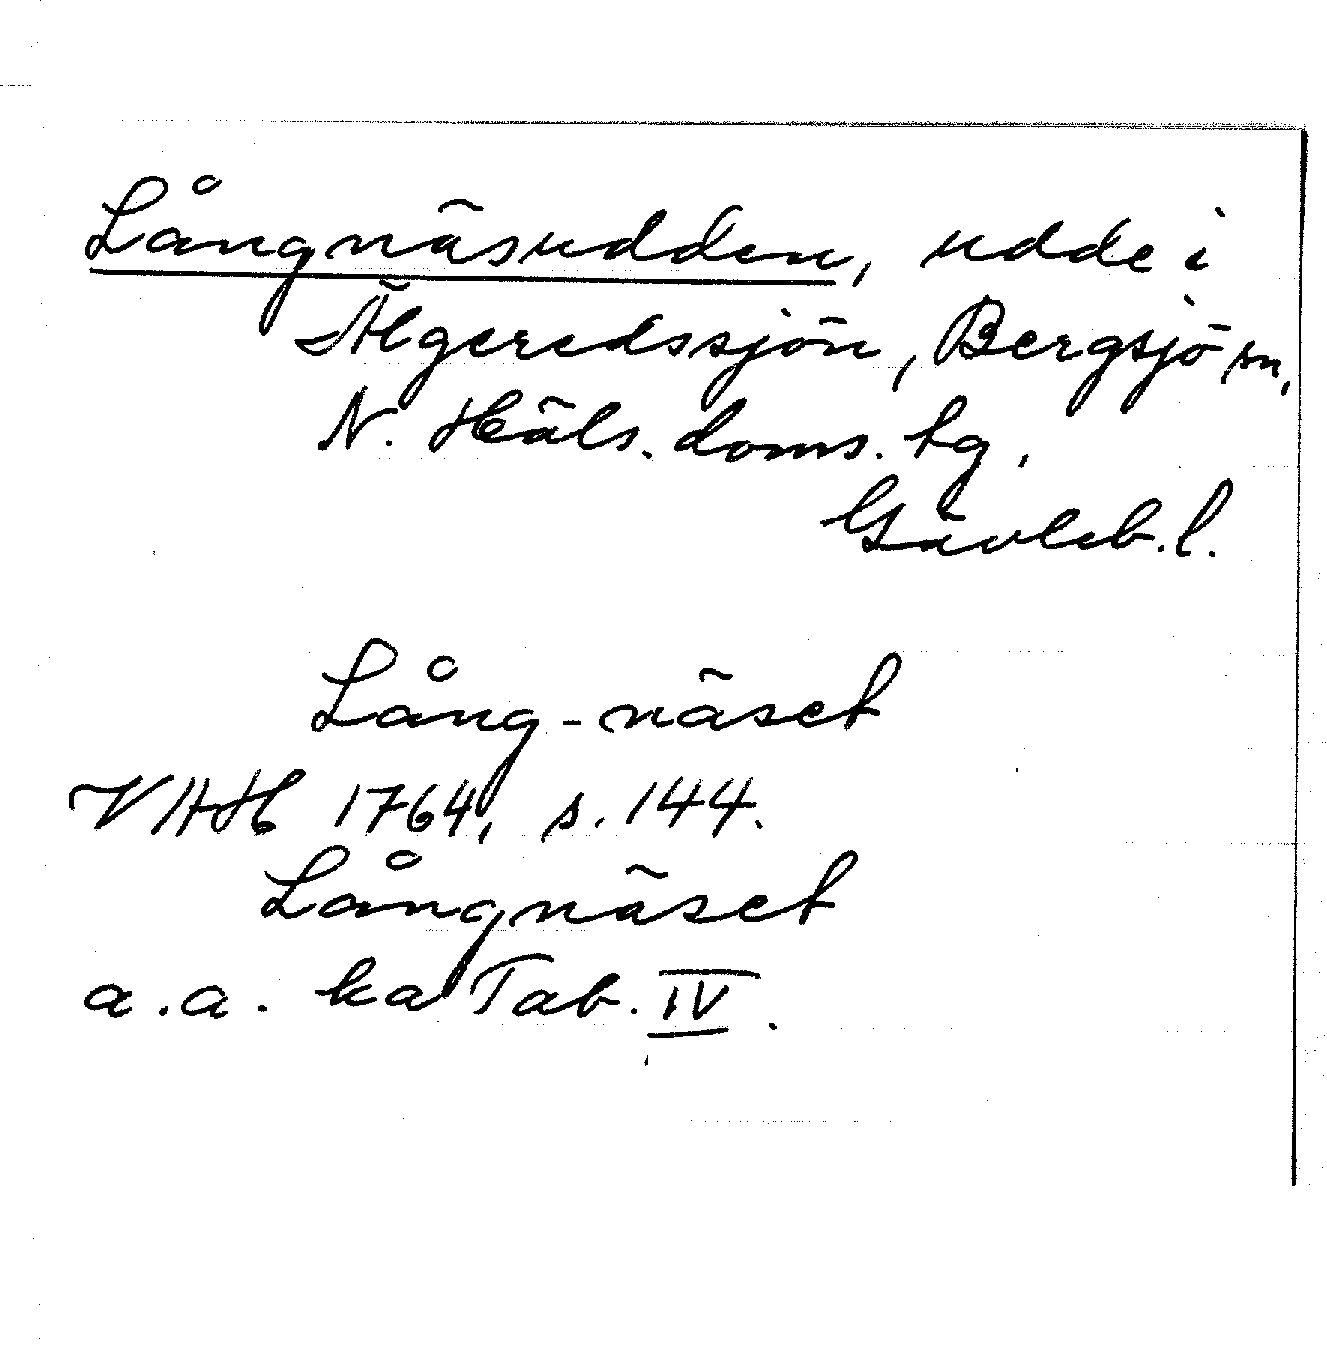 Långnäsudden, udde i
Älgeredssjön, Bergsjö sn,
N. Häls. doms. tg,
Gävleb. l.
Lång-näset
VHH 1764, s. 144.
Långnäset
a.a. ka Tab. IV.